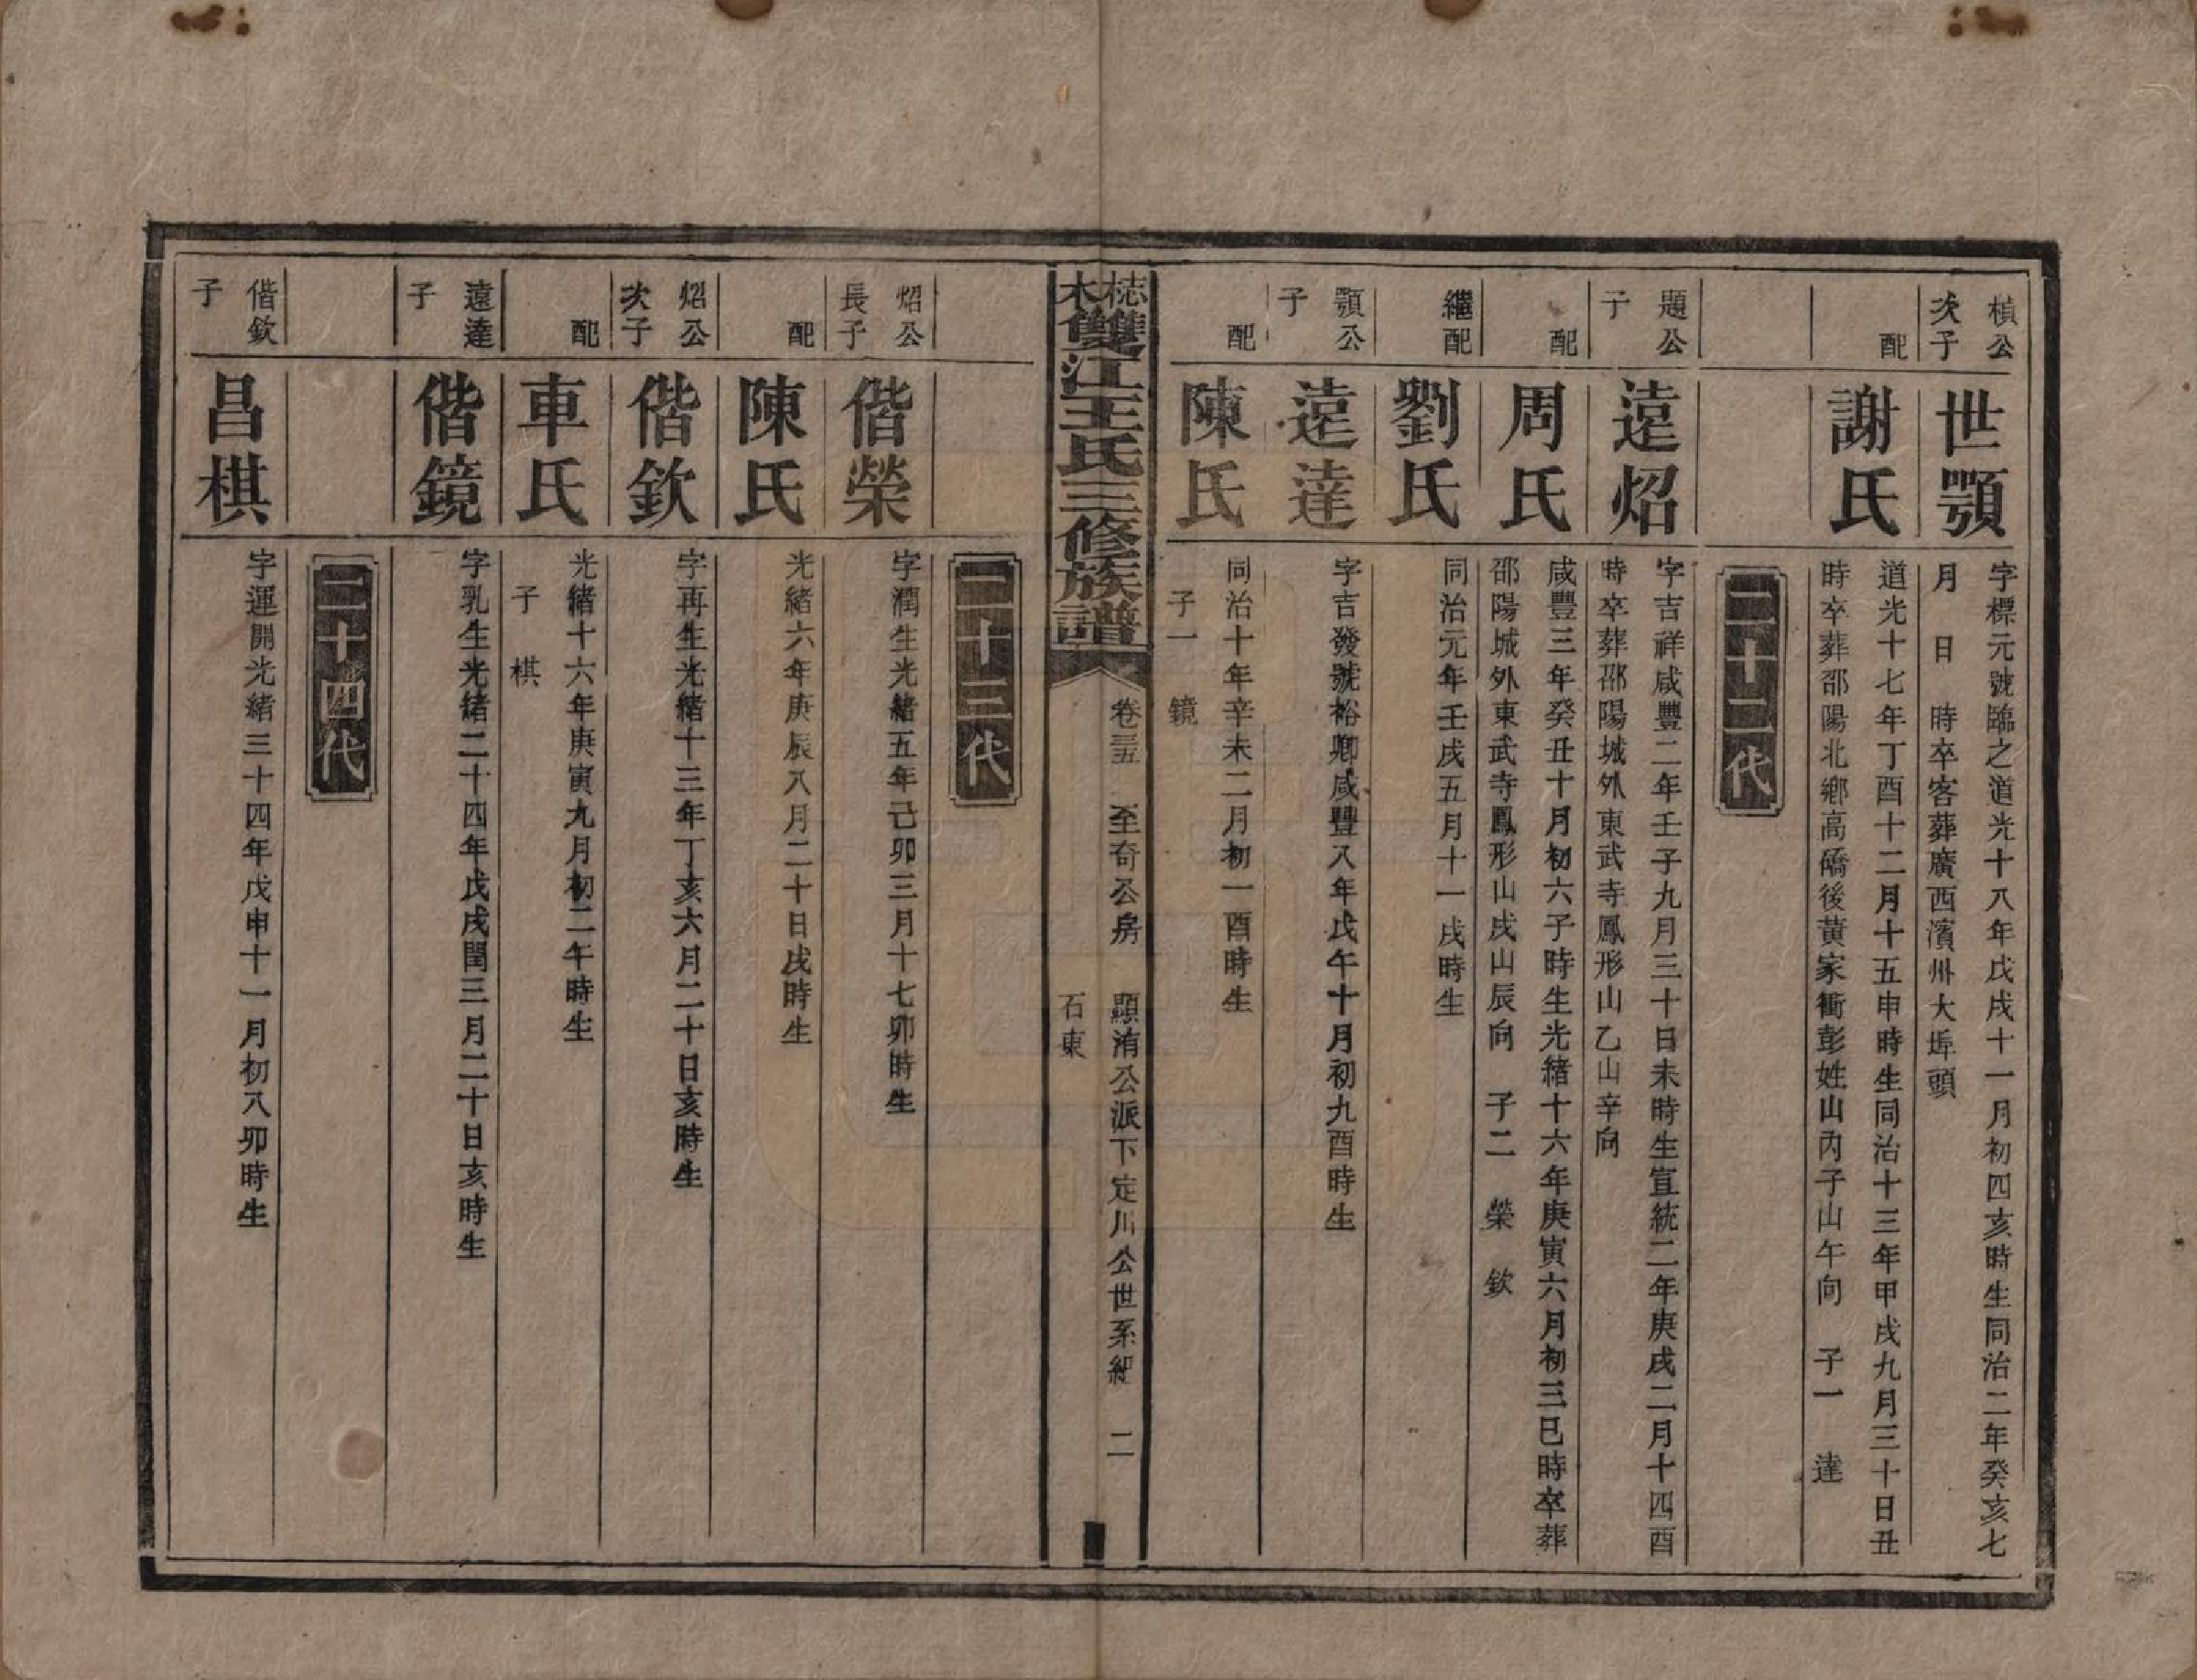 楨公
次子
世顎
字標元號臨之道光十八年戊戌十一月初四亥時生同治二年癸亥七
月　日　時卒客葬廣西濱州大埠頭
配
謝氏
道光十七年丁酉十二月十五申時生同治十三年甲戌九月三十日丑
時卒葬邵陽北鄉高礄後黃家衝彭姓山內子山午向　子一　達
二十二代
題公
子
遠炤
字吉祥咸豐二年壬子九月三十日未時生宣統二年庚戌二月十四酉
時卒葬邵陽城外東武寺鳳形山乙山辛向
配
周氏
咸豐三年癸丑十月初六子時生光緒十六年庚寅六月初三巳時卒葬
邵陽城外東武寺鳳形山戌山辰向　子二　榮　欽
繼配
劉氏
同治元年壬戌五月十一戌時生
顎公
子
遠達
字吉發號裕卿咸豐八年戊午十月初九酉時生
配
陳氏
同治十年辛未二月初一酉時生
子一　鏡
雙江王氏三修族譜
卷三五　至奇公房　顯洧公派下定川公世系紀　二
石東
二十三代
炤公
長子
偕榮
字潤生光緒五年己卯三月十七卯時生
配
陳氏
光緒六年庚辰八月二十日戌時生
炤公
次子
偕欽
字再生光緒十三年丁亥六月二十日亥時生
配
車氏
光緒十六年庚寅九月初二午時生
子　棋
遠達
子
偕鏡
字乳生光緒二十四年戊戌閏三月二十日亥時生
二十四代
偕欽
子
昌棋
字運開光緒三十四年戊申十一月初八卯時生